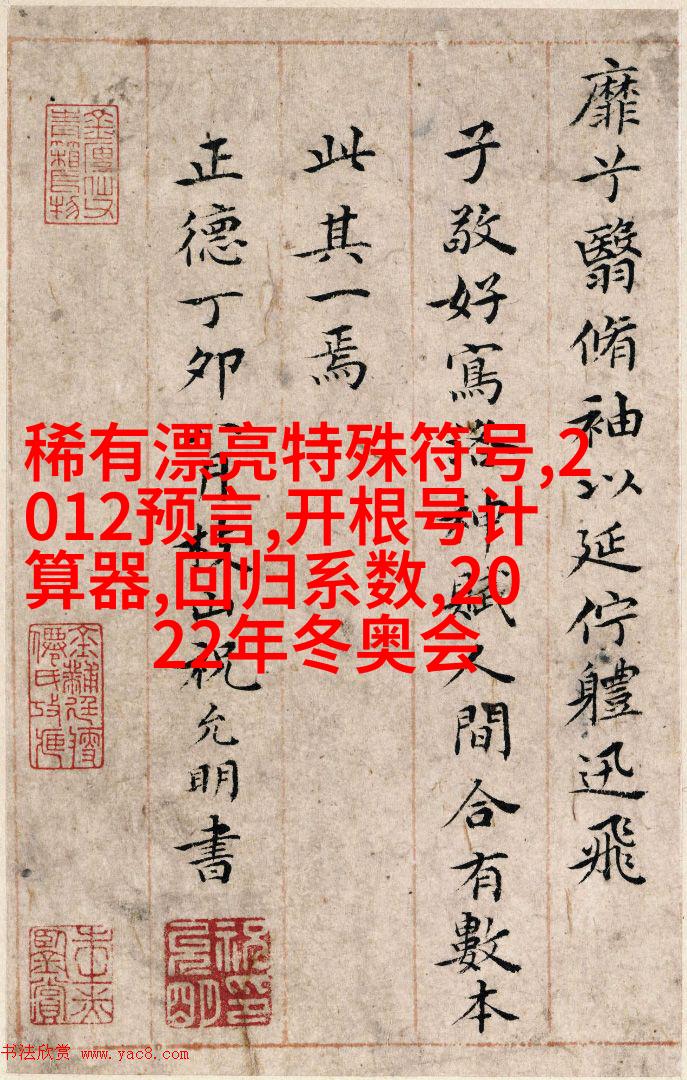 靡兮翳脩袖以延佇體迅飛
子敬好寫洛神賦人間合有數本
此其一焉
正德丁卯月枝山祝允明書
稀有漂亮特殊符号,2
012预言,开根号计
算器,回归系数,20
22年冬奥会
书法欣赏 www.yac8.com